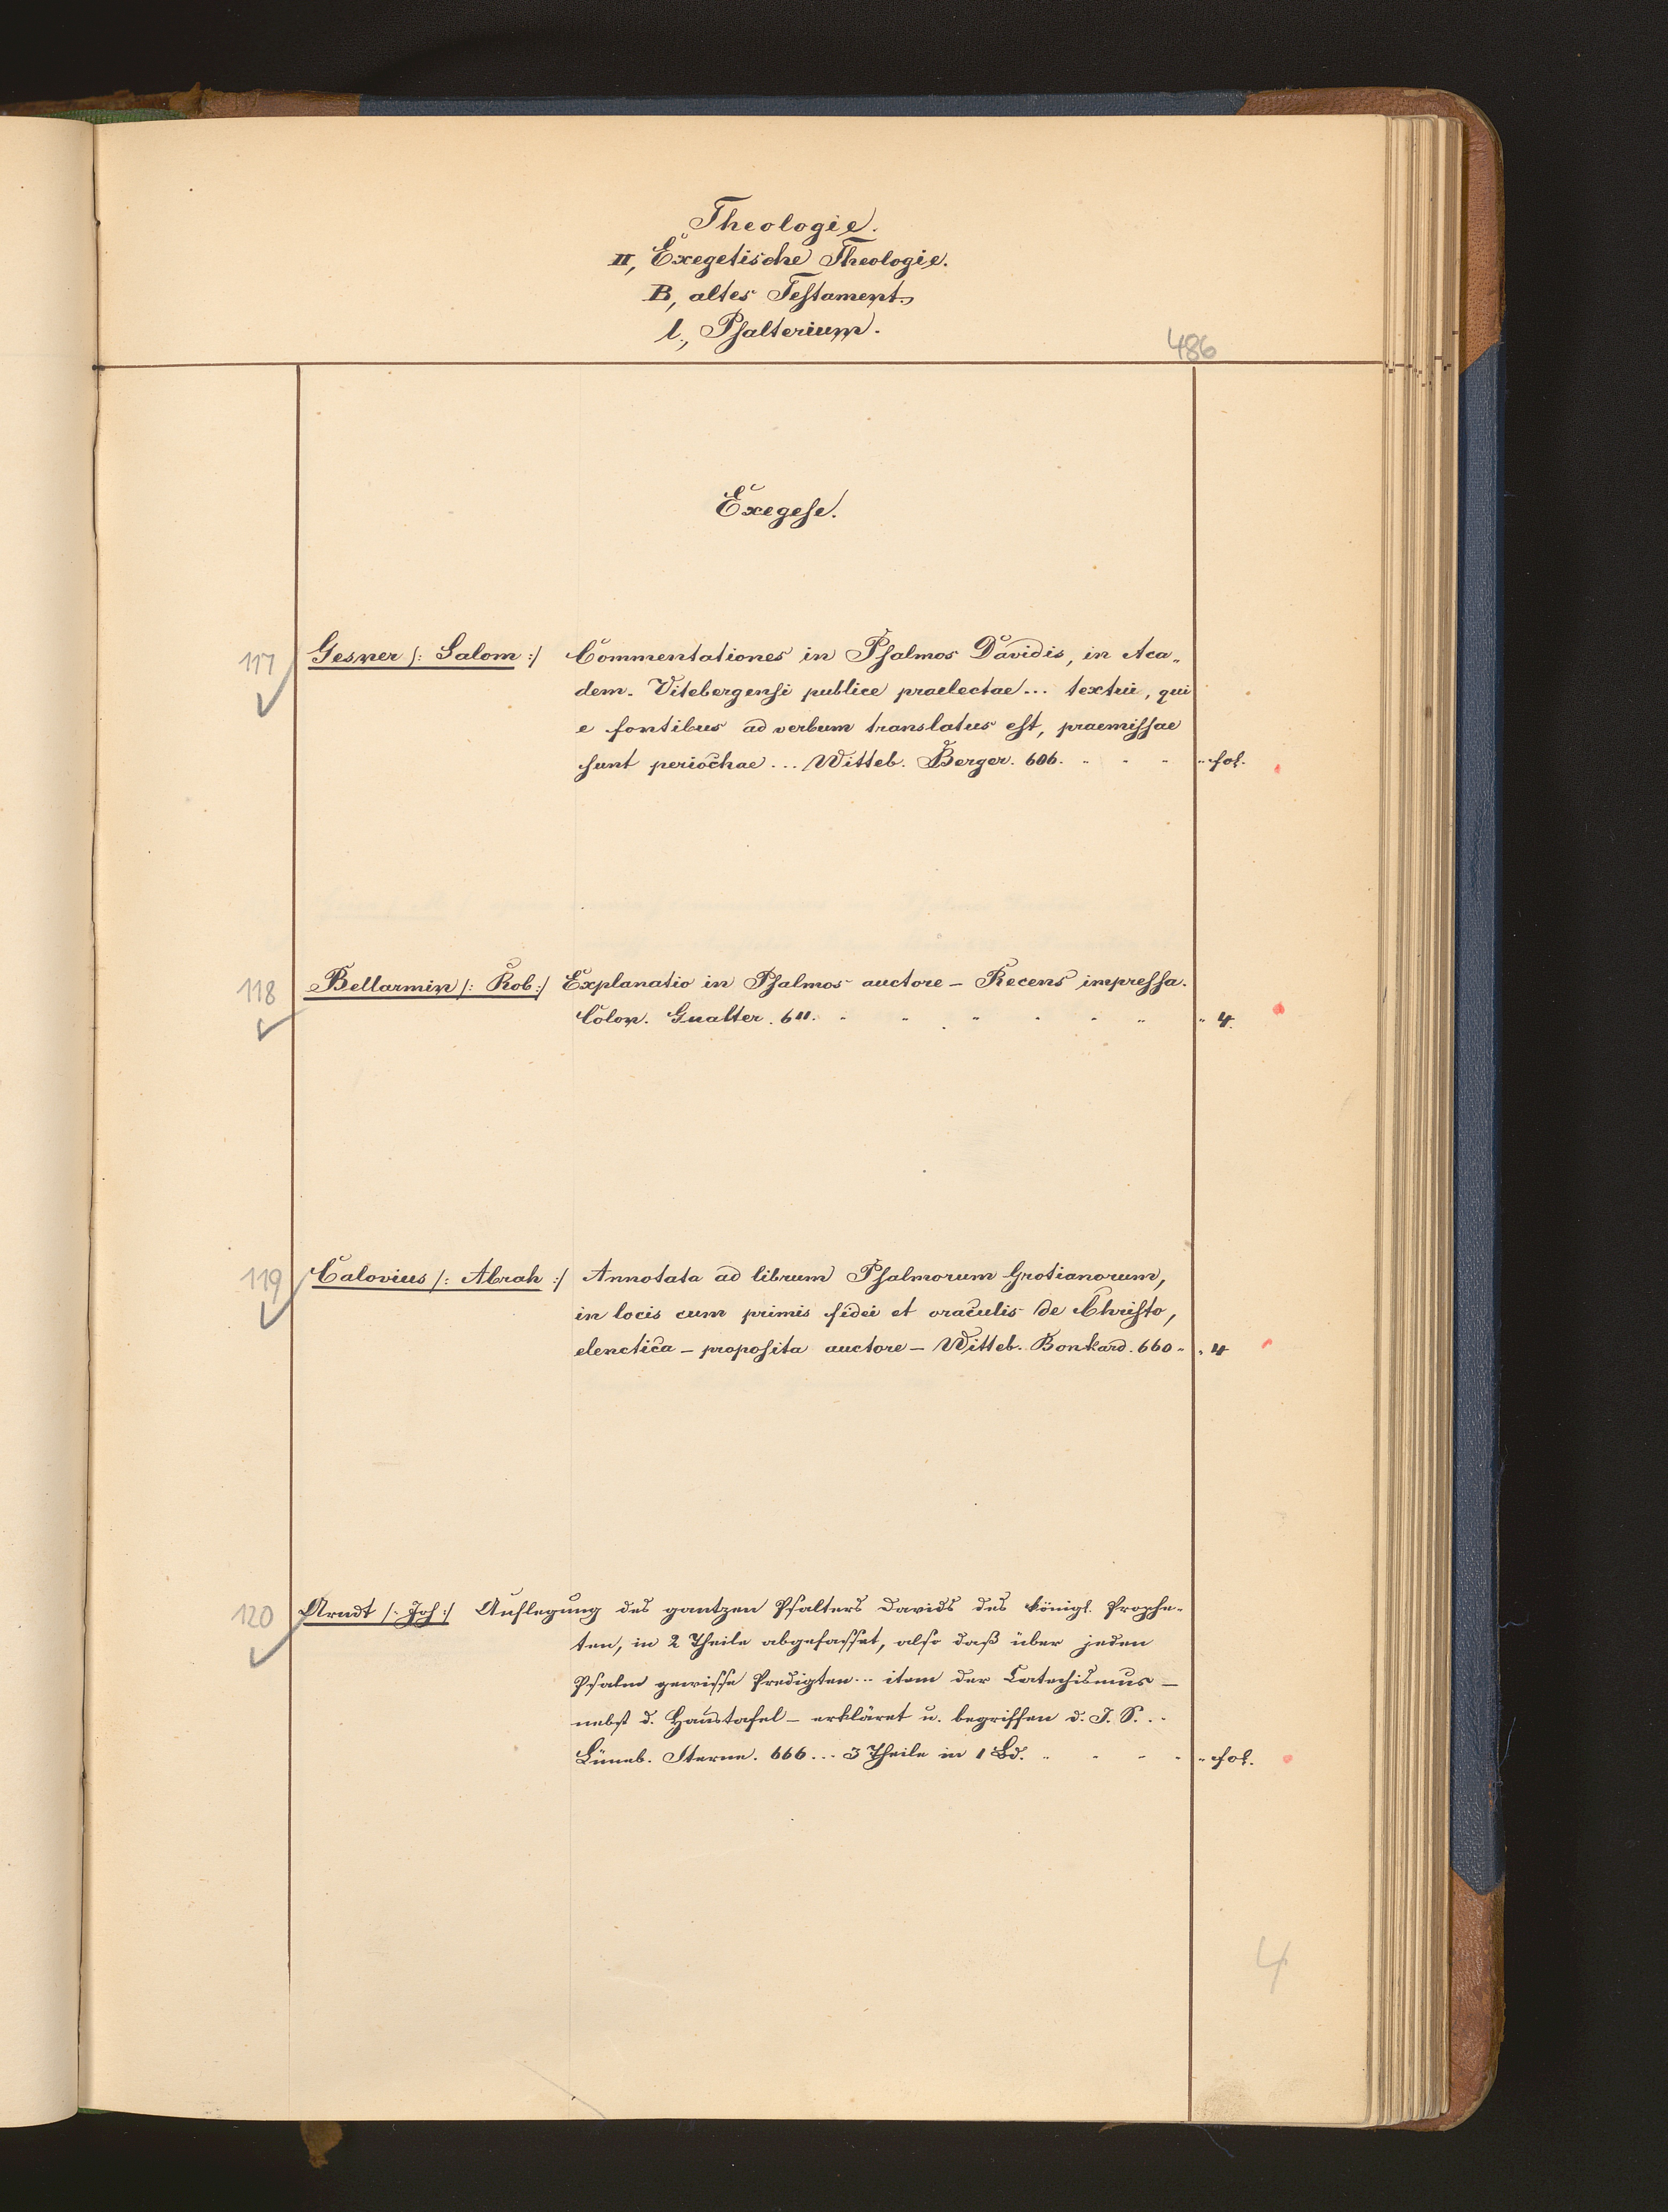 Theologie.
II, Exegetische Theologie.
B, altes Testament.
l., Psalterium.
486
Exegese.
117 Gesner /: Salom :/ Commentationes in Psalmos Davidis, in Aca„
dem. Vitebergensi publice praelectae... textui, qui
e fontibus ad verbum translatus est, praemissae
sunt periochae... Witteb. Berger. 606. " " " " fol.
118 Bellarmin /: Rob :/ Explanatio in Psalmos auctore – Recens impressa.
Colon. Gualter. 611. " " " " " " " 4.
119 Calovius /: Abrah :/ Annotata ad librum Psalmorum Grotianorum,
in locis cum primis fidei et oraculis de Christo,
elenctica – proposita auctore – Witteb. Borckard. 660 " " 4
120 Arndt /: Joh :/ Auslegung des gantzen Psalters Davids des königl. Prophe-
ten, in 2 Theile abgefasset, also daß über jeden
Psalm gewisse Predigten... item der Catechismus –
nebst d. Haustafel – erkläret u. begriffen d. J. S...
Lüneb. Sterne. 666... 3 Theile in 1 Bd. " " " " " fol.
4